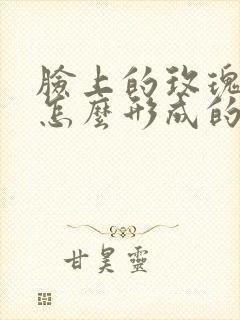 臉上的玫瑰
怎麼形成的
甘昊靈